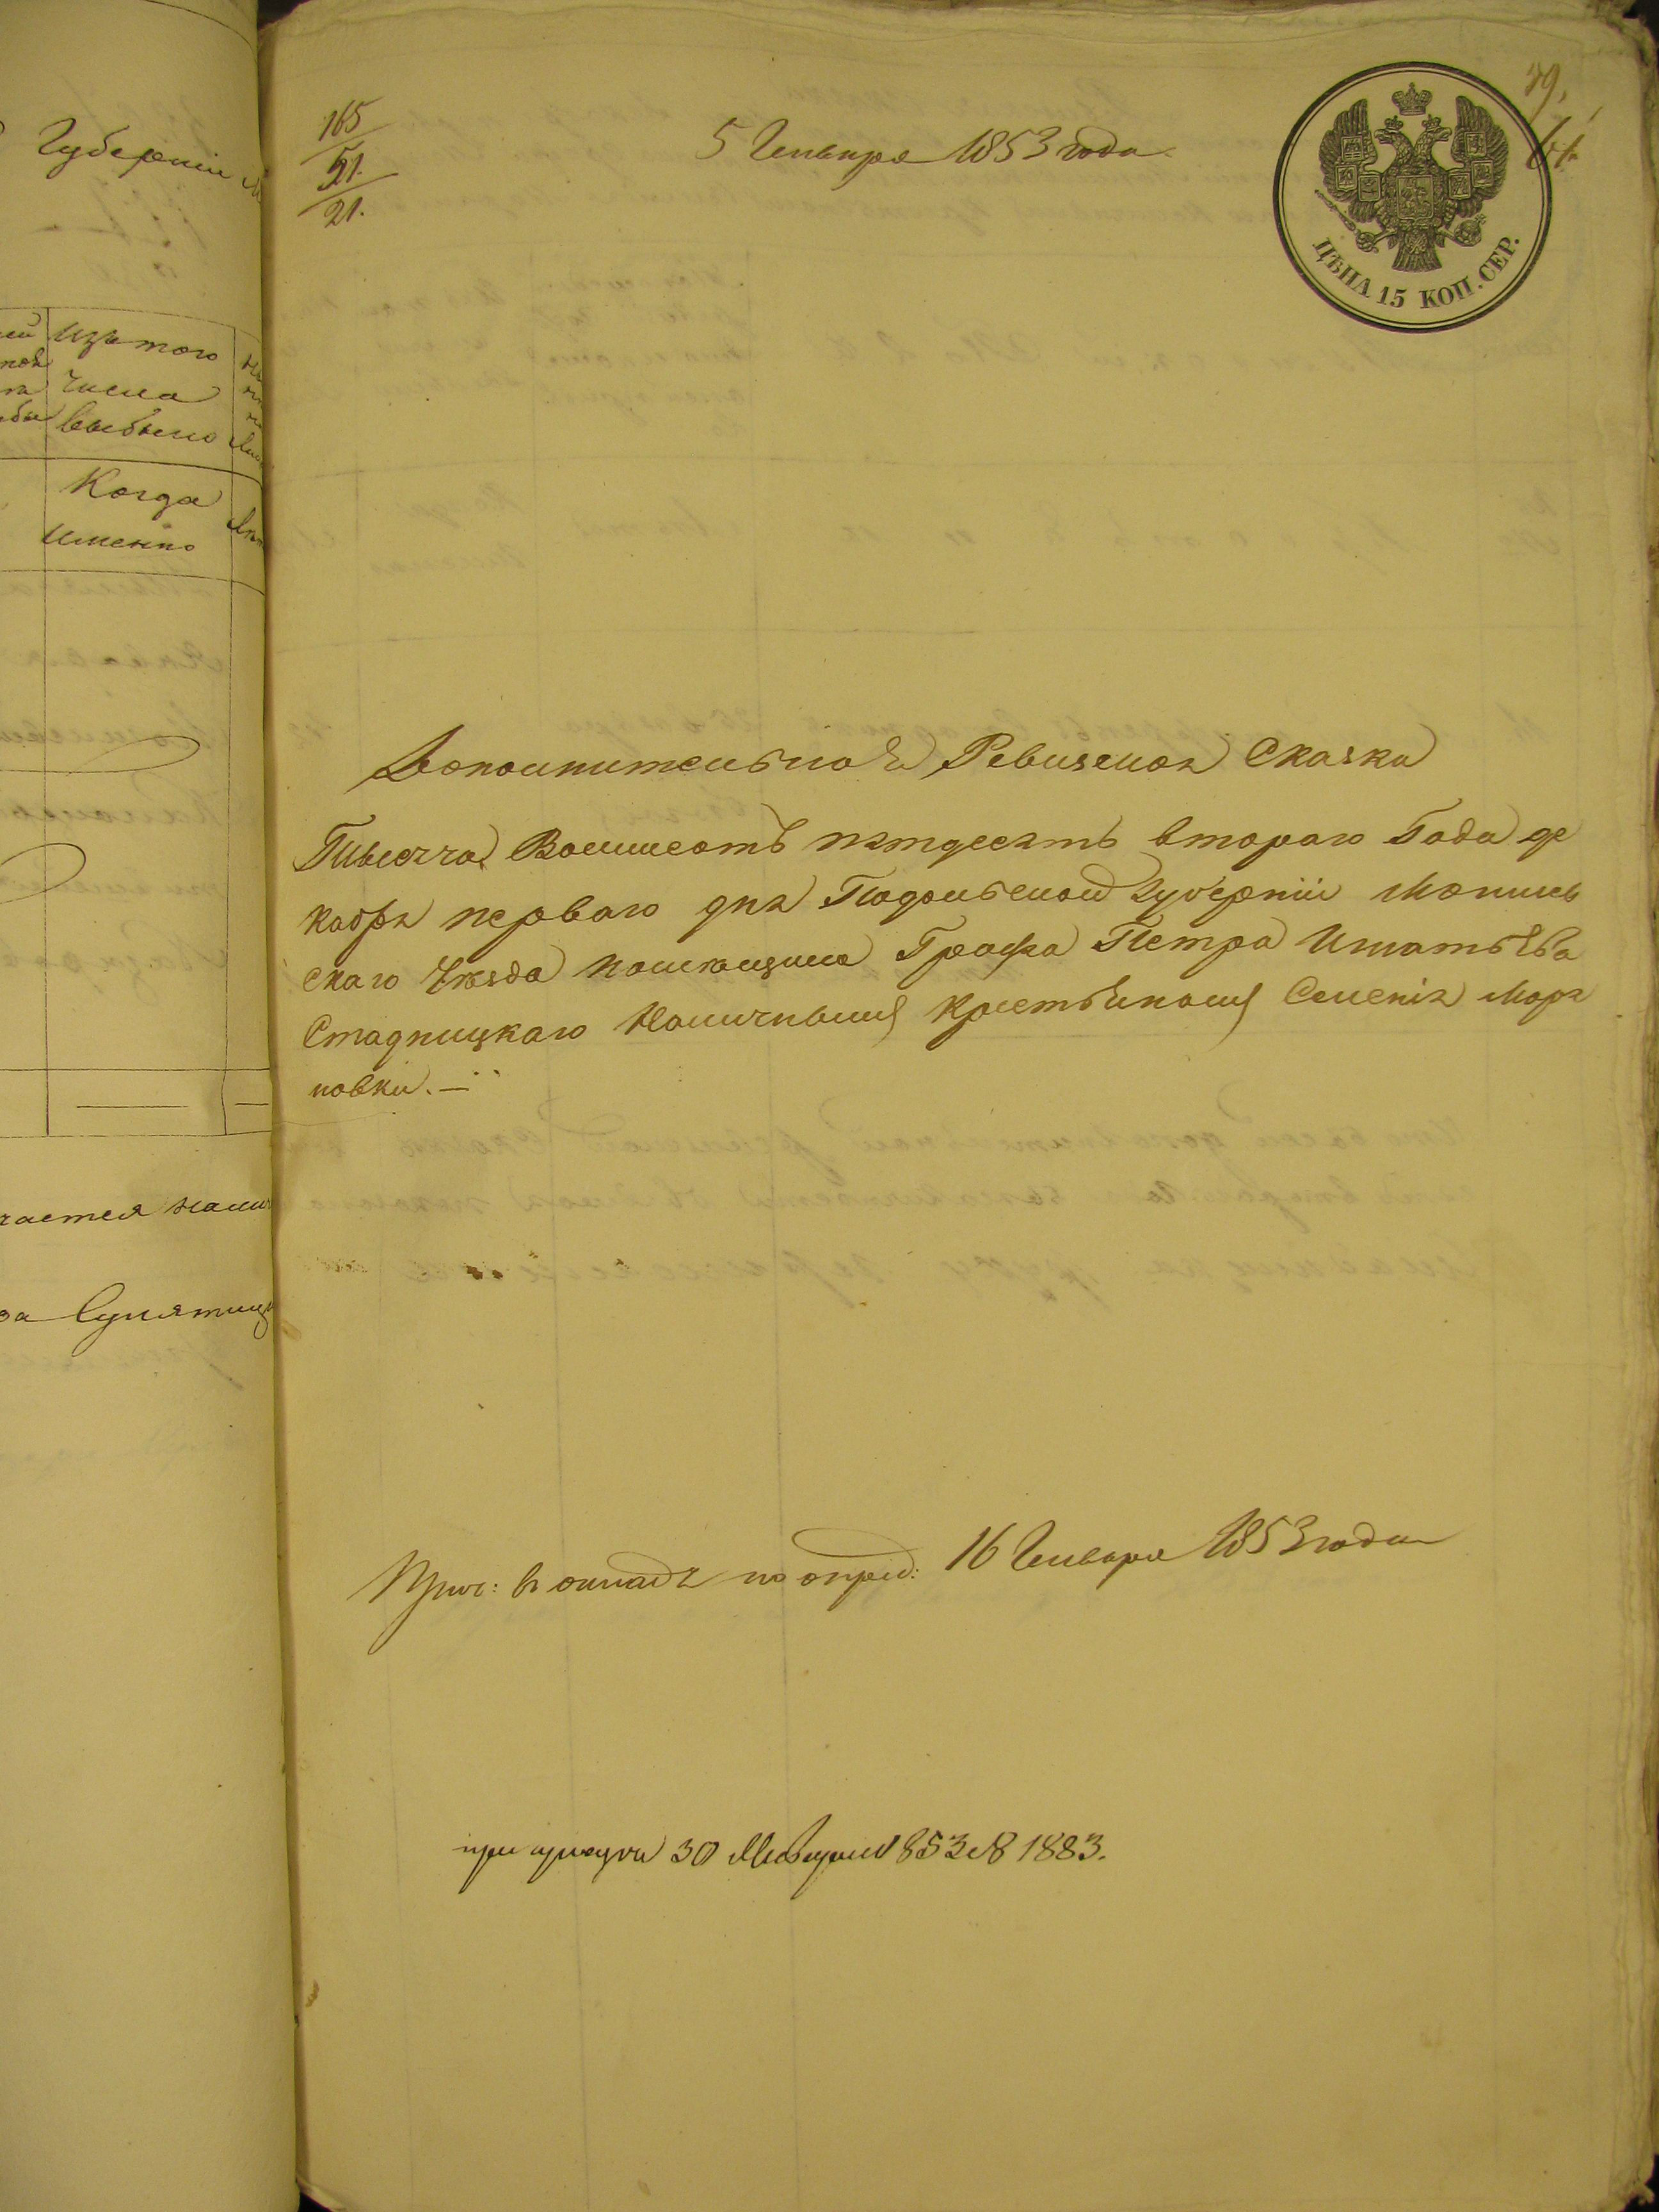 Губерніи
изъ того
числа
выбыло
Когда
именно
чается налич
165
51.
21.
5 Генваря 1853 года.
ЦѢНА 15 КОП. СЕР.
Дополнительная Ревизская Сказка
Тысяча Восимсотъ пятдесятъ втораго Года де
кабря перваго дня Подольской Губерніи Могилев
скаго Уѣзда помѣщика Графа Петра Игнатьева
Стадницкаго Наличнымъ Крестьянамъ Селенія Маръ
новки. —
Прич: в окладъ по опред: 16 Генваря 1853 года
при указѣ 30 Генваря 1853 № 1883.